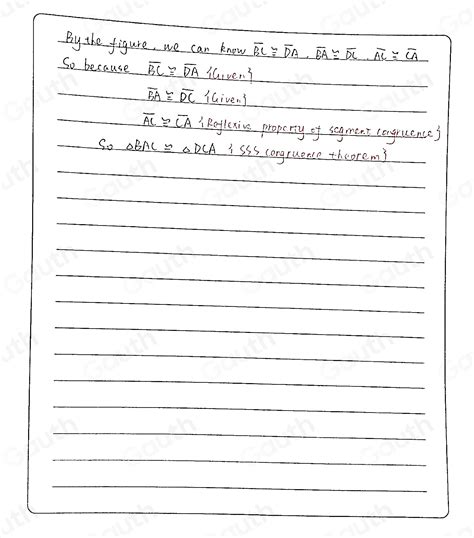 By the figure, we can know B̅C̅ ≅ D̅A̅, B̅A̅ ≅ D̅C̅, A̅C̅ ≅ C̅A̅
So because B̅C̅ ≅ D̅A̅ {Given}
B̅A̅ ≅ D̅C̅ {Given}
A̅C̅ ≅ C̅A̅ {Reflexive property of segment congruence}
So △BAC ≅ △DCA {SSS congruence theorem}
Gauth